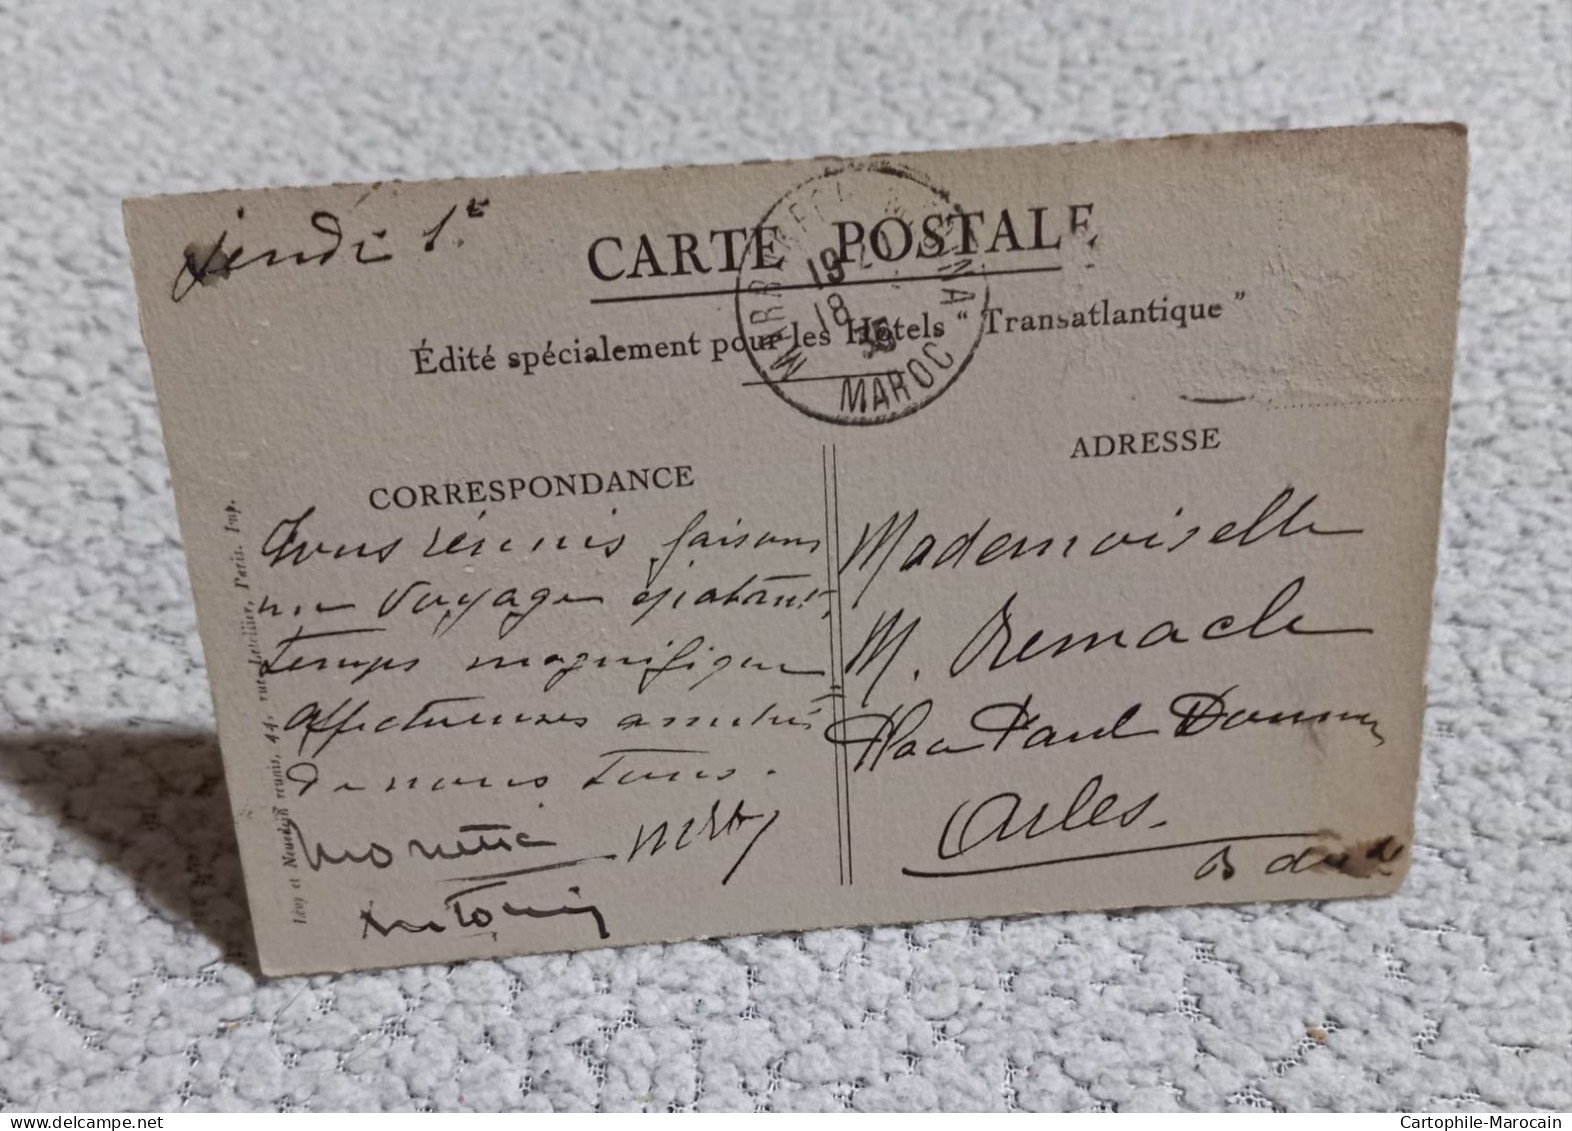 Jeudi 1.er
CARTE POSTALE
Édité spécialement pour les Hôtels “ Transatlantique ”
MARRAKECH MEDINA
19
18
35
MAROC
CORRESPONDANCE
ADRESSE
Tous réunis faisons
un voyage épatant,
temps magnifique
affectueuses amitiés
de nous tous.
Antonin
Mademoiselle
M. Remacle
Place Paul Doumer
Arles.
B du R
Lévy et Neurdein réunis, 44, rue Letellier, Paris. Imp.
Cartophile-Marocain